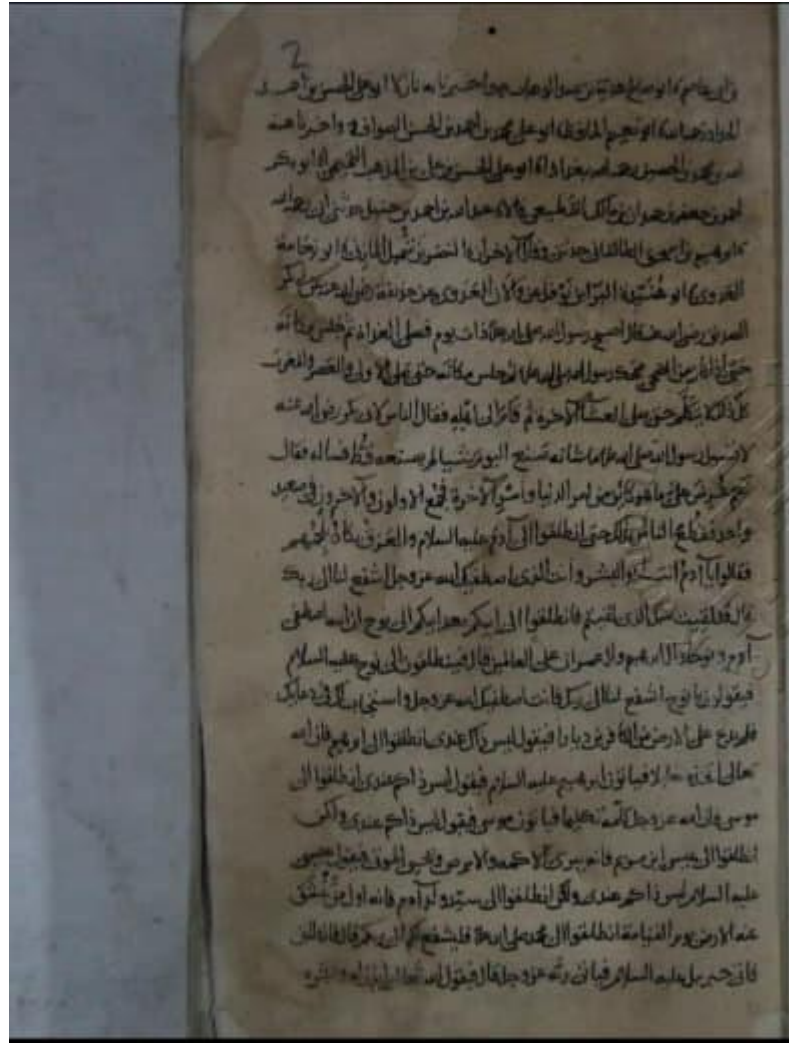 2
الحداد انا ابو نعيم الحافظ انا ابو علي محمد بن احمد بن الحسن الصواف واخبرنا هبة
الله بن محمد بن الحصين رحمه الله ببغداد انا ابو علي الحسن بن علي بن المذهب التميمي انا ابو بكر
احمد بن جعفر بن حمدان بن مالك القطيعي قالا عبد الله بن احمد بن حنبل حدثني ابي رحمه الله
ابرهيم بن اسحق الطالقاني حدثني وقال الآخران النضر بن شميل المازني ابو نعامة
العدوي ابو هنيدة البراء بن نوفل عن والان العدوي عن حذيفة رضي الله عن ابي بكر
الصديق رضي الله عنه قال اصبح رسول الله صلى الله عليه ذات يوم فصلى الغداة ثم جلس مكانه
حتى اذا كان من الضحى ضحك رسول الله صلى الله عليه ثم جلس مكانه حتى صلى الاولى والعصر والمغرب
كل ذلك لا يتكلم حتى صلى العشاء الآخرة ثم قام الى اهله فقال الناس لابي بكر رضي الله عنه
الا تسل رسول الله صلى الله عليه ما شانه صنع اليوم شيا لم يصنعه قط فساله فقال
نعم عرض علي ما هو كائن من امر الدنيا وامر الآخرة فجمع الاولون والآخرون في صعيد
واحد ففظع الناس بذلك حتى انطلقوا الى آدم عليه السلام والعرق يكاد يلجمهم
فقالوا يا آدم انت ابو البشر وانت الذي اصطفيك الله عز وجل اشفع لنا الى ربك
قال قد لقيت مثل الذي لقيتم فانطلقوا الى ابيكم بعد ابيكم الى نوح ان الله اصطفى
آدم ونوحا وآل ابرهيم وآل عمران على العالمين قال فينطلقون الى نوح عليه السلام
فيقولون يا نوح اشفع لنا الى ربك فانت اصطفيك الله عز وجل واستجاب لك في دعايك
فلم يدع على الارض من الكافرين ديارا فيقول ليس ذاكم عندي انطلقوا الى ابرهيم فان الله
تعالى اتخذه خليلا فياتون ابرهيم عليه السلام فيقول ليس ذاكم عندي انطلقوا الى
موسى فان الله عز وجل كلمه تكليما فياتون موسى فيقول ليس ذاكم عندي ولكن
انطلقوا الى عيسى ابن مريم فانه يبري الاكمه والابرص ويحيي الموتى فيقول عيسى
عليه السلام ليس ذاكم عندي ولكن انطلقوا الى سيد ولد آدم فانه اول من تنشق
عنه الارض يوم القيامة انطلقوا الى محمد صلى الله عليه فليشفع لكم الى ربكم قال فانطلق
فاتى جبريل عليه السلام فياتي ربه عز وجل قال فيقول الله